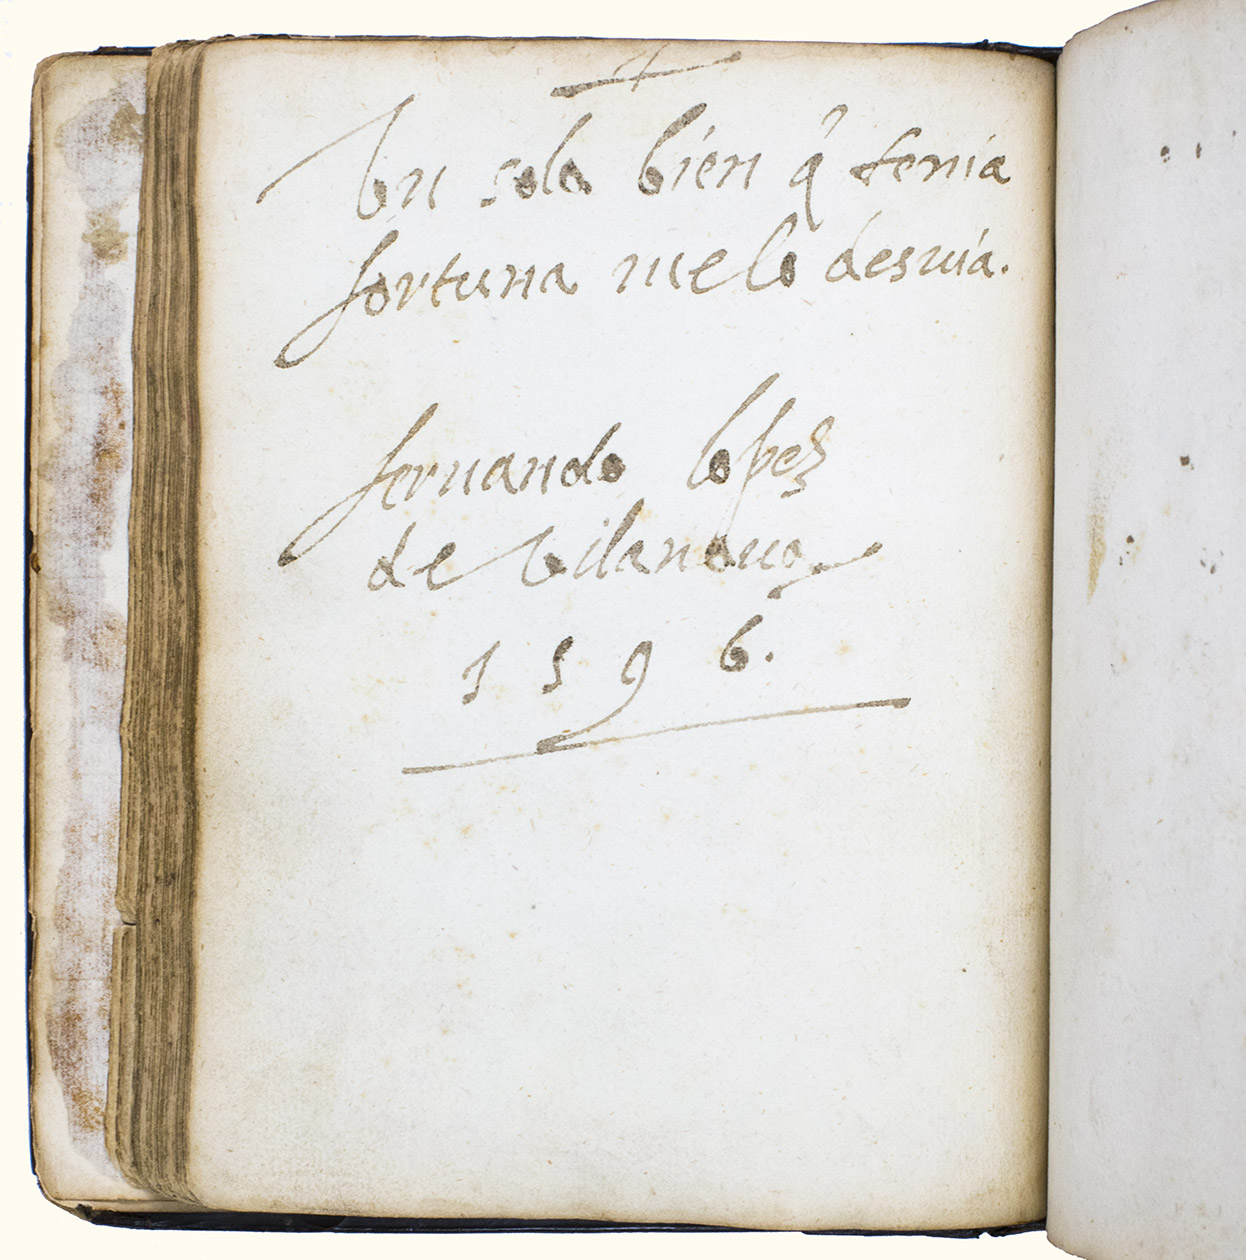 Vn solo bien q̃ tenia
fortuna me lo desuia.
fernando lopez
de Vilanoua
1596.